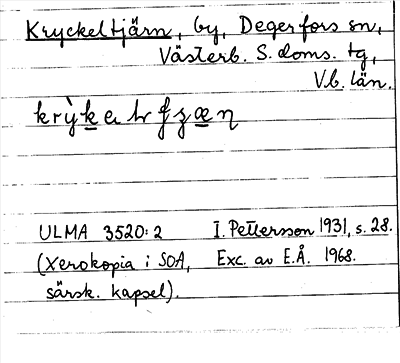 Kryckeltjärn, by, Degerfors sn,
Västerb. S. doms. tg,
Vb. län.
ULMA 3520:2 I. Pettersson 1931, s. 28.
(Xerokopia i SOA, Exc. av E.Å. 1968.
särsk. kapsel).